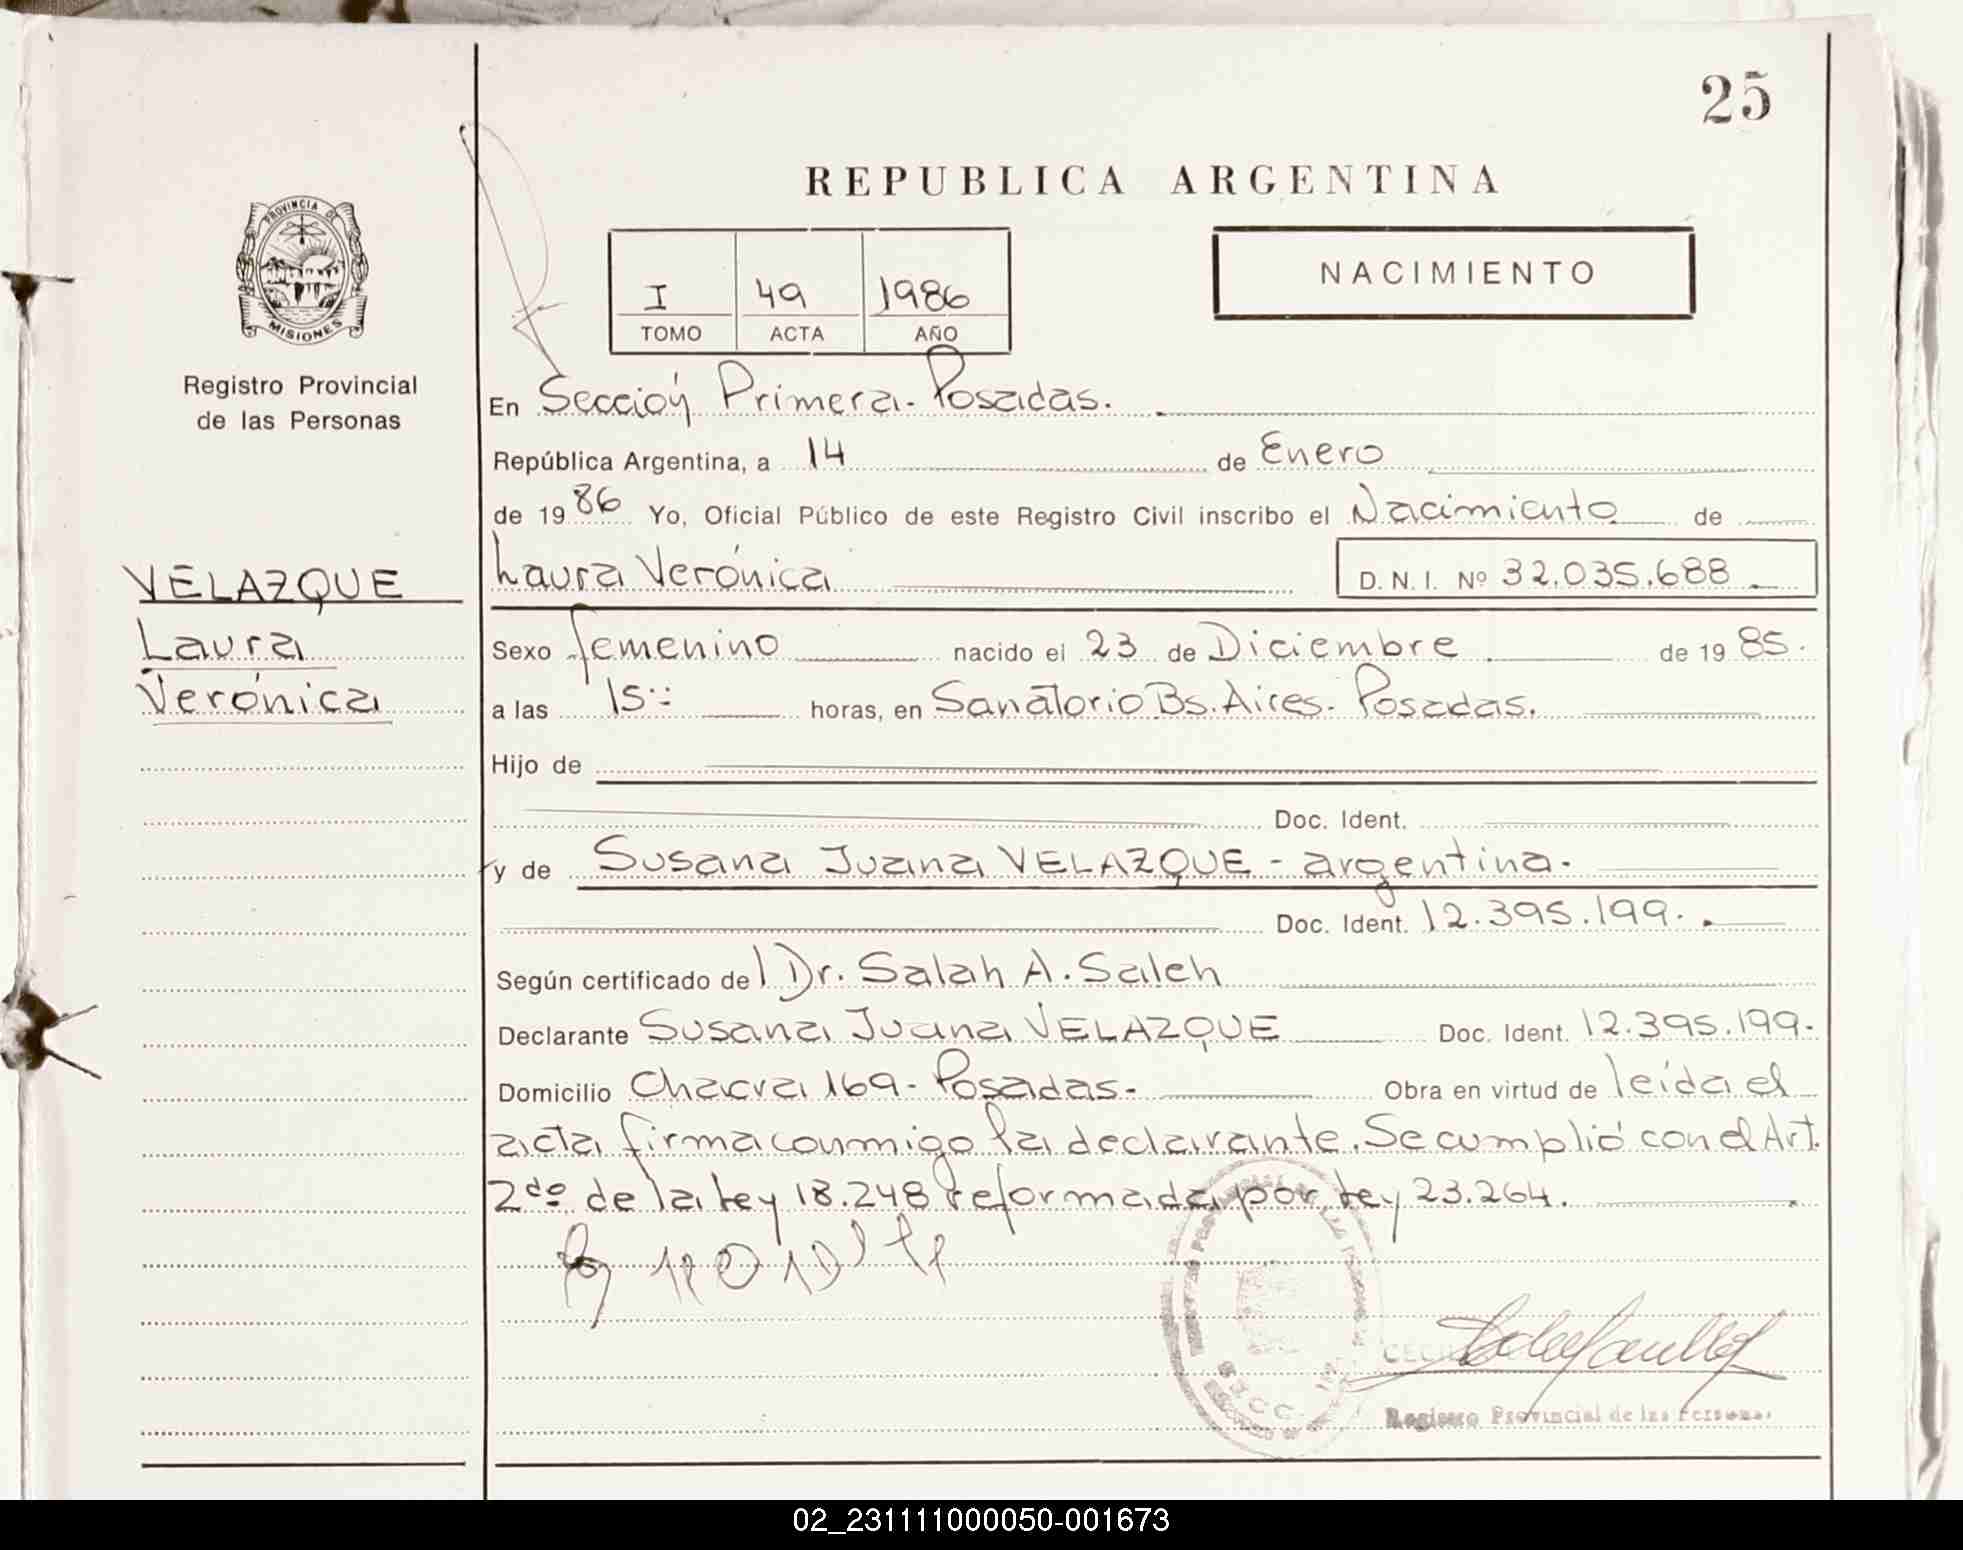 25
REPUBLICA ARGENTINA
PROVINCIA DE
MISIONES
Registro Provincial
de las Personas
I 49 1986
TOMO ACTA AÑO
NACIMIENTO
En Sección Primera. Posadas.
República Argentina, a 14 de Enero
de 19 86 Yo, Oficial Público de este Registro Civil inscribo el Nacimiento de
VELAZQUE
Laura
Verónica
Laura Verónica D. N. I. Nº 32.035.688
Sexo femenino nacido el 23 de Diciembre de 19 85.
a las 15:: horas, en Sanatorio Bs. Aires. Posadas.
Hijo de
Doc. Ident.
y de Susana Juana VELAZQUE - argentina.
Doc. Ident. 12.395.199.
Según certificado del Dr. Salah A. Saleh
Declarante Susana Juana VELAZQUE Doc. Ident. 12.395.199.
Domicilio Chacra 169 - Posadas - Obra en virtud de leída el
acta firma conmigo la declarante. Se cumplió con el Art.
2do de la Ley 18.248 reformada por Ley 23.264.
Registro Provincial de las Personas
02_231111000050-001673